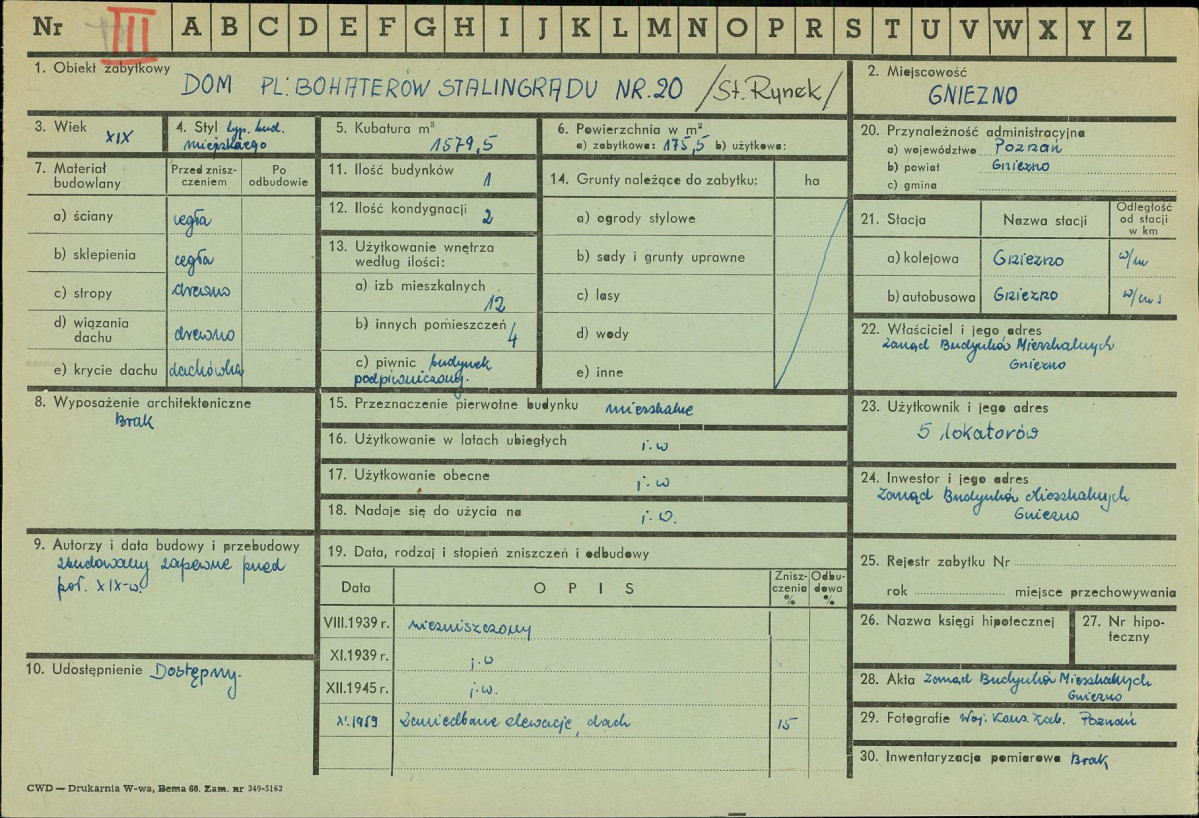 Nr III A B C D E F G H I J K L M N O P R S T U V W X Y Z
1. Obiekt zabytkowy DOM PL. BOHATERÓW STALINGRADU NR. 20 /St. Rynek/
2. Miejscowość
GNIEZNO
3. Wiek
XIX
4. Styl typ. bud.
miejskiego
5. Kubatura m³
1579,5
6. Powierzchnia w m²
a) zabytkowa: 175,5 b) użytkowa:
20. Przynależność administracyjna
a) województwo Poznań
b) powiat Gniezno
c) gmina
7. Materiał
budowlany
Przed znisz-
czeniem
Po
odbudowie
a) ściany cegła
b) sklepienia cegła
c) stropy drewno
d) wiązania
dachu drewno
e) krycie dachu dachówka
11. Ilość budynków 1
12. Ilość kondygnacji 2
13. Użytkowanie wnętrza
według ilości:
a) izb mieszkalnych
12
b) innych pomieszczeń 4
c) piwnic budynek
podpiwniczony.
14. Grunty należące do zabytku: ha
a) ogrody stylowe
b) sady i grunty uprawne
c) lasy
d) wody
e) inne
21. Stacja Nazwa stacji
Odległość
od stacji
w km
a) kolejowa Gniezno w/m
b) autobusowa Gniezno w/m
22. Właściciel i jego adres
Zarząd Budynków Mieszkalnych
Gniezno
8. Wyposażenie architektoniczne
Brak
15. Przeznaczenie pierwotne budynku mieszkalne
16. Użytkowanie w latach ubiegłych j.w
17. Użytkowanie obecne j.w
18. Nadaje się do użycia na j.w.
23. Użytkownik i jego adres
5 lokatorów
24. Inwestor i jego adres
Zarząd Budynków Mieszkalnych
Gniezno
9. Autorzy i data budowy i przebudowy
zbudowany zapewne przed
poł. XIX w.
19. Data, rodzaj i stopień zniszczeń i odbudowy
Data OPIS
Znisz-
czenia
%
Odbu-
dowa
%
VIII.1939 r. niezniszczony
XI.1939 r. j.w
XII.1945 r. j.w.
XI.1959 Zaniedbane elewacje, dach 15
25. Rejestr zabytku Nr
rok miejsce przechowywania
26. Nazwa księgi hipotecznej
27. Nr hipo-
teczny
10. Udostępnienie Dostępny.
28. Akta Zarząd Budynków Mieszkalnych
Gniezno
29. Fotografie Woj. Kons. Zab. Poznań
30. Inwentaryzacja pomiarowa Brak
CWD — Drukarnia W-wa, Bema 60. Zam. nr 349-5162